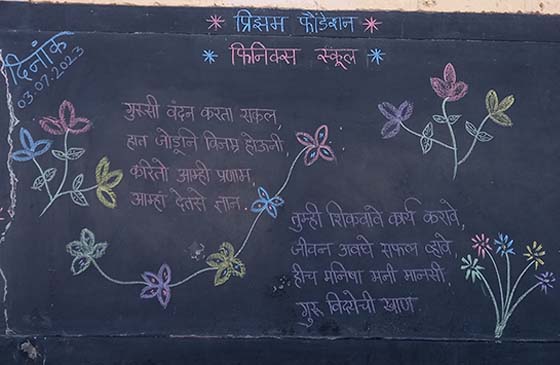 प्रिझम फौंडेशन
फिनिक्स स्कूल
दिनांक
03.07.2023
गुरुसी वंदन करता सकल,
हात जोडूनि विनम्र होऊनी,
करितो आम्ही प्रणाम,
आम्हां देतसे ज्ञान.
तुम्ही शिकवावे कार्य करावे,
जीवन अवघे सफल व्हावे,
हीच मनिषा मनी मानसी,
गुरू विद्येची खाण.